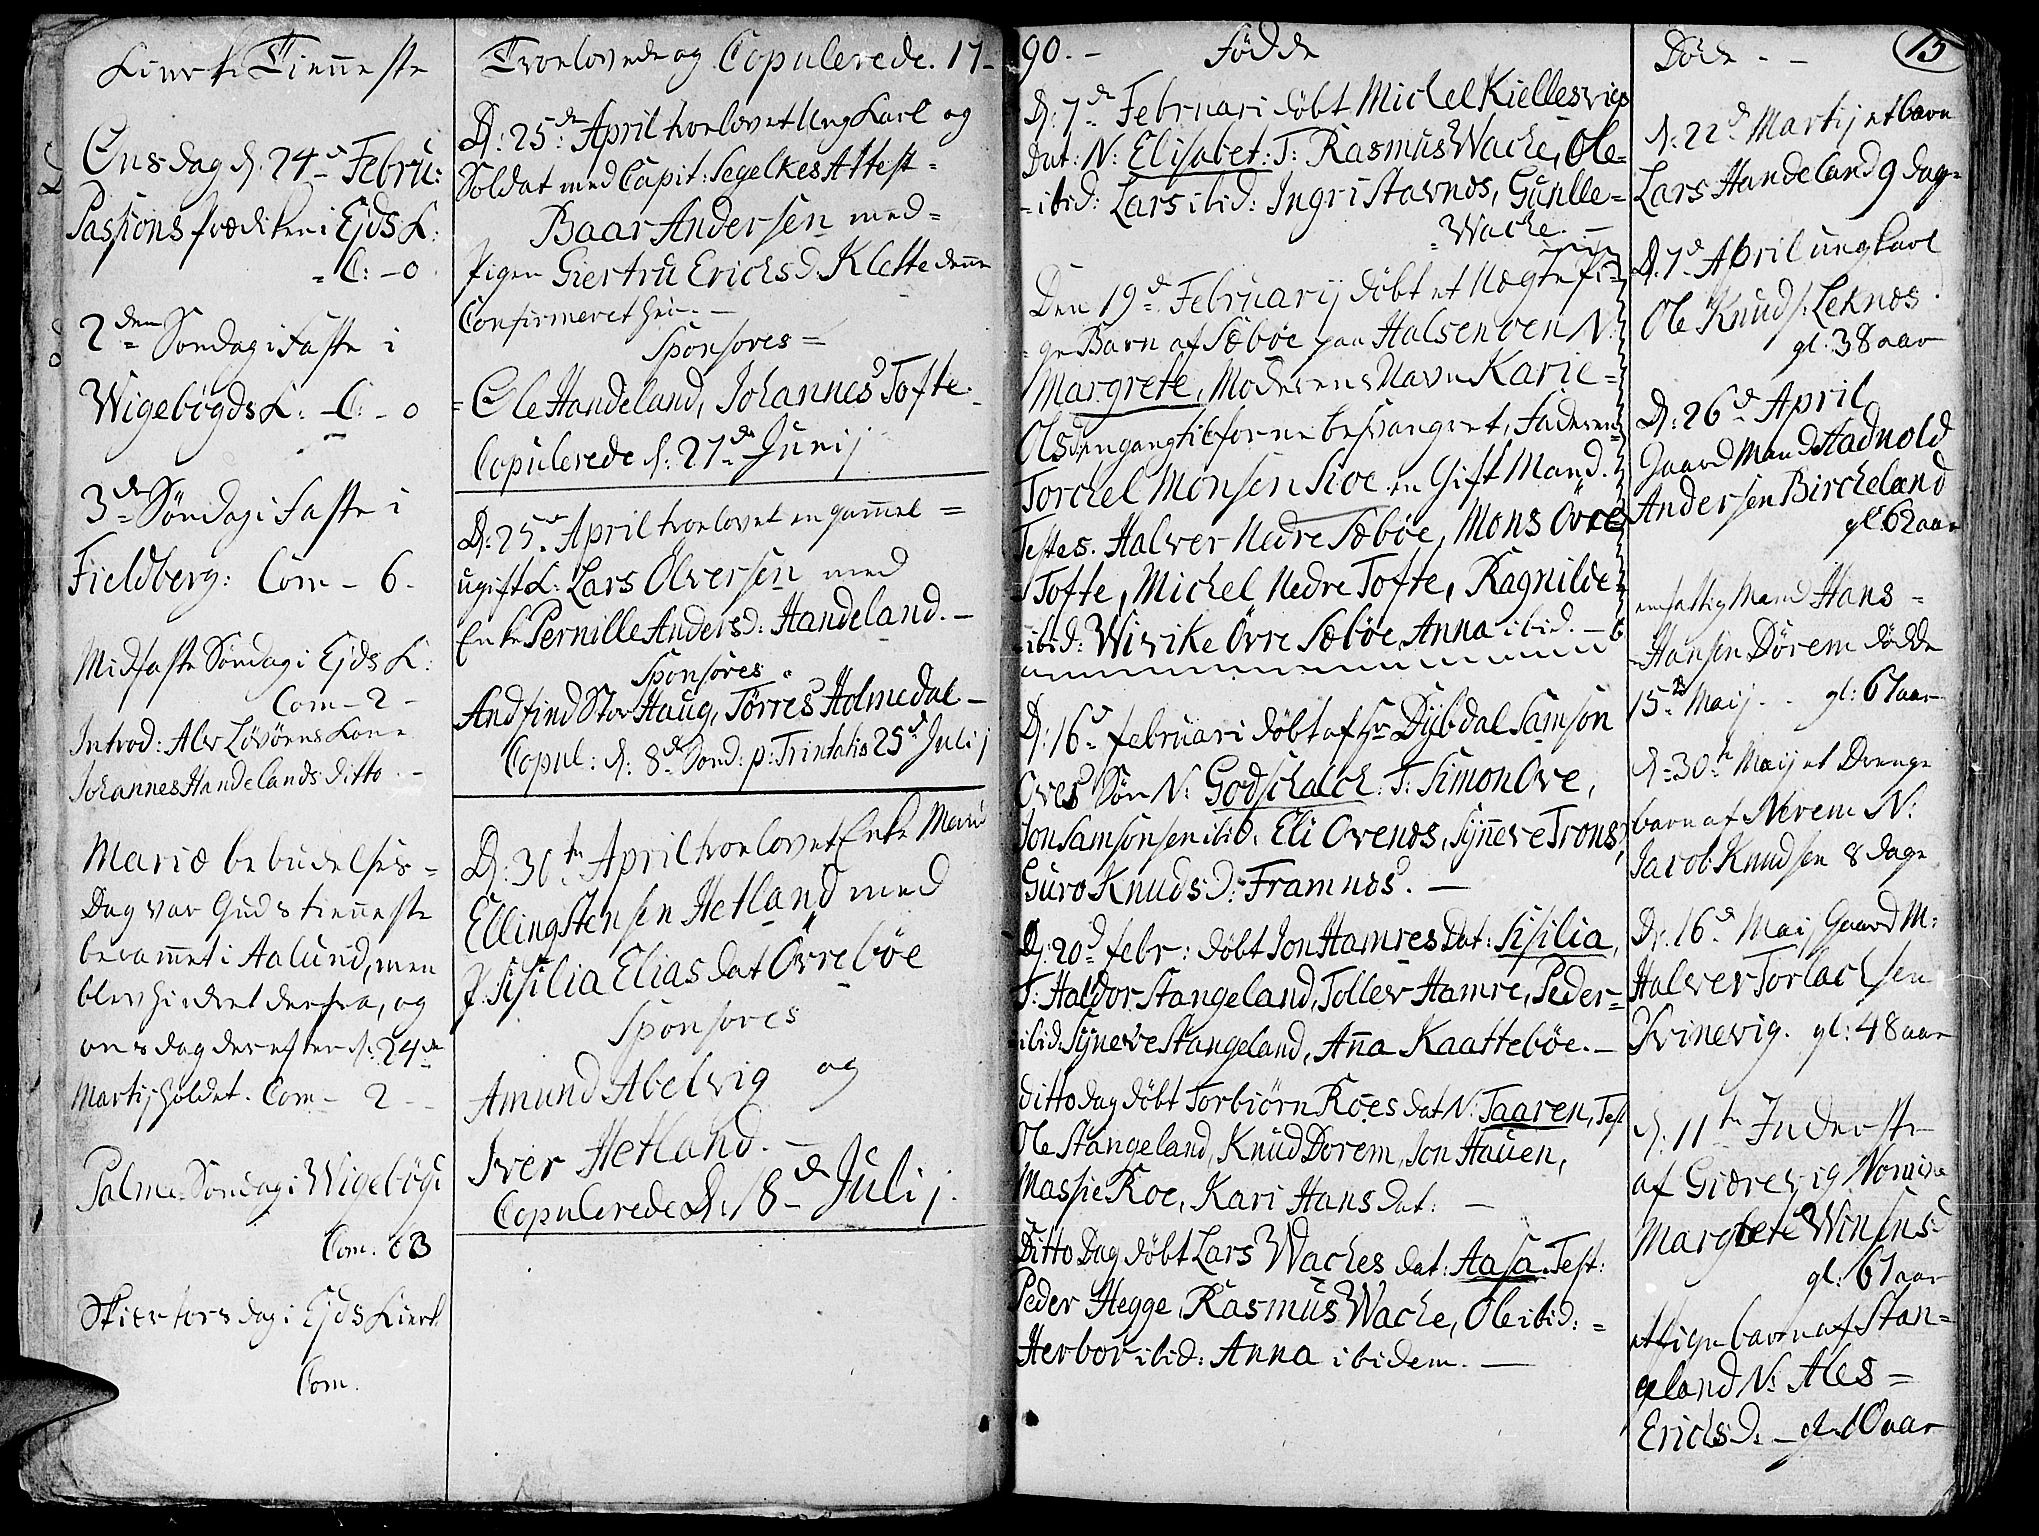 Kierke Tienneste
Onsdag d: 24de Febru:
Passions prædiken i Ejds K:
= C: - 0.
2den Søndag i Faste i
Wigebøgds K: - C: - 0
3de Søndag i Faste i
Fieldberg: Com - 6 -
Midfaste Søndag i Ejds K:
Com - 2 -
Introd: Alv Løvøens Kone
Johannes Handelands ditto. -
Mariæ bebudelses =
Dag var Guds tienneste
berammet i Aalund, men
blev hindret derfra, og
onsdag derefter d: 24de
Martij holdet. Com - 2 -
Palme Søndag i Wigebøgd
Com. 63
Skiertorsdag i Ejds Kierk
Com.
Troelovede og Copulerede. 17-
D: 25de April troelovet Ung Karl og
Soldat med Capit: Segelkes Attest =
Baar Andersen med =
Pigen Giertru Erichsd. Klette denne
Confirmeret her. -
Sponsores =
= Ole Handeland, Johannes Tofte.
Copulerede d: 27de Junij
D: 25de April troelovet en gammel =
ugift K: Lars Olversen med
Enke Pernille Andersd: Handeland. -
Sponsores.
Andfind Stor Haug, Tørres Holmedal -
Copul: d: 8de Sond: p: Trinitatis 25de Julij
D: 30te April troelovet Enke Mand
Elling Stensen Hetland med
P. Sisilia Elias dat Övrebøe
Sponsores
Amund Abelvig og
Iver Hetland. -
Copulerede d: 18de Julij.
90. - Fødde
D: 7de Februari døbt Michel Kiellesvigs
Dat: N: Elisabet: T: Rasmus Wache, Ole =
= ibid: Lars ibid: Ingri Stavnes, Gunlle =
= Wache. -
Den 19de Februarij døbt et Uægte Pi =
ge Barn af Sæbøe paa Halsenøen N:
Margrete, Moderens Navn Karie =
Olsd engang tilforne besvangret, Faderen
Torchel Monsen Sioe en Gift Mand.
Testes. Halver Nedre Sæbøe, Mons Övre
Tofte, Michel Nedre Tofte, Ragnilde
ibid: Wivike Övre Sæbøe, Anna ibid. -
D: 16de februari døbt af Hr Dybdal Samson
Oves Søn N: Godschalch: T: Simon Ove,
Jon Samsonsen ibid. Eli Ovenes, Synneve Trons,
Guro Knudsd: Framnes. -
D: 20de febr: døbt Jon Hamres Dat: Sisilia,
T: Haldor Stangeland, Tollev Hamre, Peder =
ibid. Synneve Stangeland, Anna Kaattebøe. -
ditto dag døbt Torbiørn Roes dat N: Taaren, Tes
Ole Stangeland, Knud Dorem, Jon Hauen,
Massie Roe, Kari Hans dat: -
Ditto Dag døbt Lars Waches dat: Aasa. Test:
Peder Hegge, Rasmus Wache, Ole ibid: =
Herbor ibid: Anna ibidem. -
Døde. - 15
d: 22de Martij et barn
Lars Handeland 9 dage
D: 7de April ung Karl
Ole Knuds: Leknes.
gl: 38 aar
D: 26de April
Gaard Mand Hadnold
Andersen Bircheland
gl: 62 aar
en fattig Mand Hans =
Hansen Dörem døde
15de Maij. . gl: 67 aar
d: 30te Maij et Drenge
barn af Nerem N:
Jacob Knudsen 8 dage
D: 16de Maij Gaard M:
Halver Torlachsen
Svinevig. gl: 48 aar
d: 11te Inderste
af Giærevig Nomine
Margrete Winsens d
gl: 67 aar
et Pigebarn af Stan =
geland N: Ales =
Erichsd. - gl. 10 aar